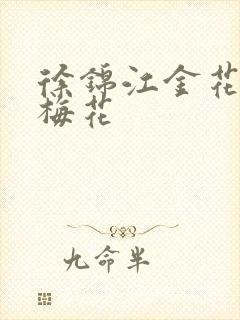 徐錦江金花
梅花
九命半